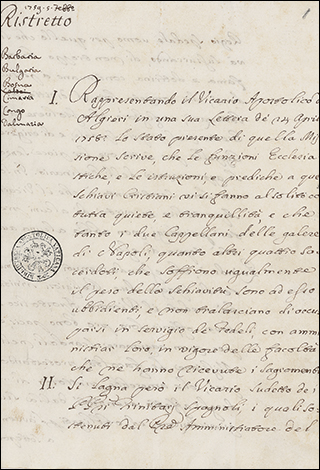 1759. 5. Febb.
Ristretto
1
Barbaria
Bulgaria
Bosna
Cimarra
Congo
Dalmazia
I. Rappresentando il Vicario Apostolico d'
Algieri in una sua Lettera de 24 Aprile
1758. lo stato presente di quella Mis
sione scrive, che le funzioni Ecclesia
stiche, e le istruzioni, e prediche a que
schiavi Cristiani vi si fanno al solito co
tutta quiete e tranquillità, e che
tanto i due Cappellani delle galere
di Napoli, quanto altri quattro Sa-
cerdoti, che soffrono ugualmente
il peso della schiavitù sono ad esso
ubbidienti, e non tralasciano di occu
parsi in servigio de Fedeli, con ammi
nistrar loro, in vigore delle facoltà
che ne hanno ricevute i sagramenti
II. Si lagna però il Vicario sudetto de i
PP. Trinitarj Spagnoli, i quali so
stenuti dal Amministratore del